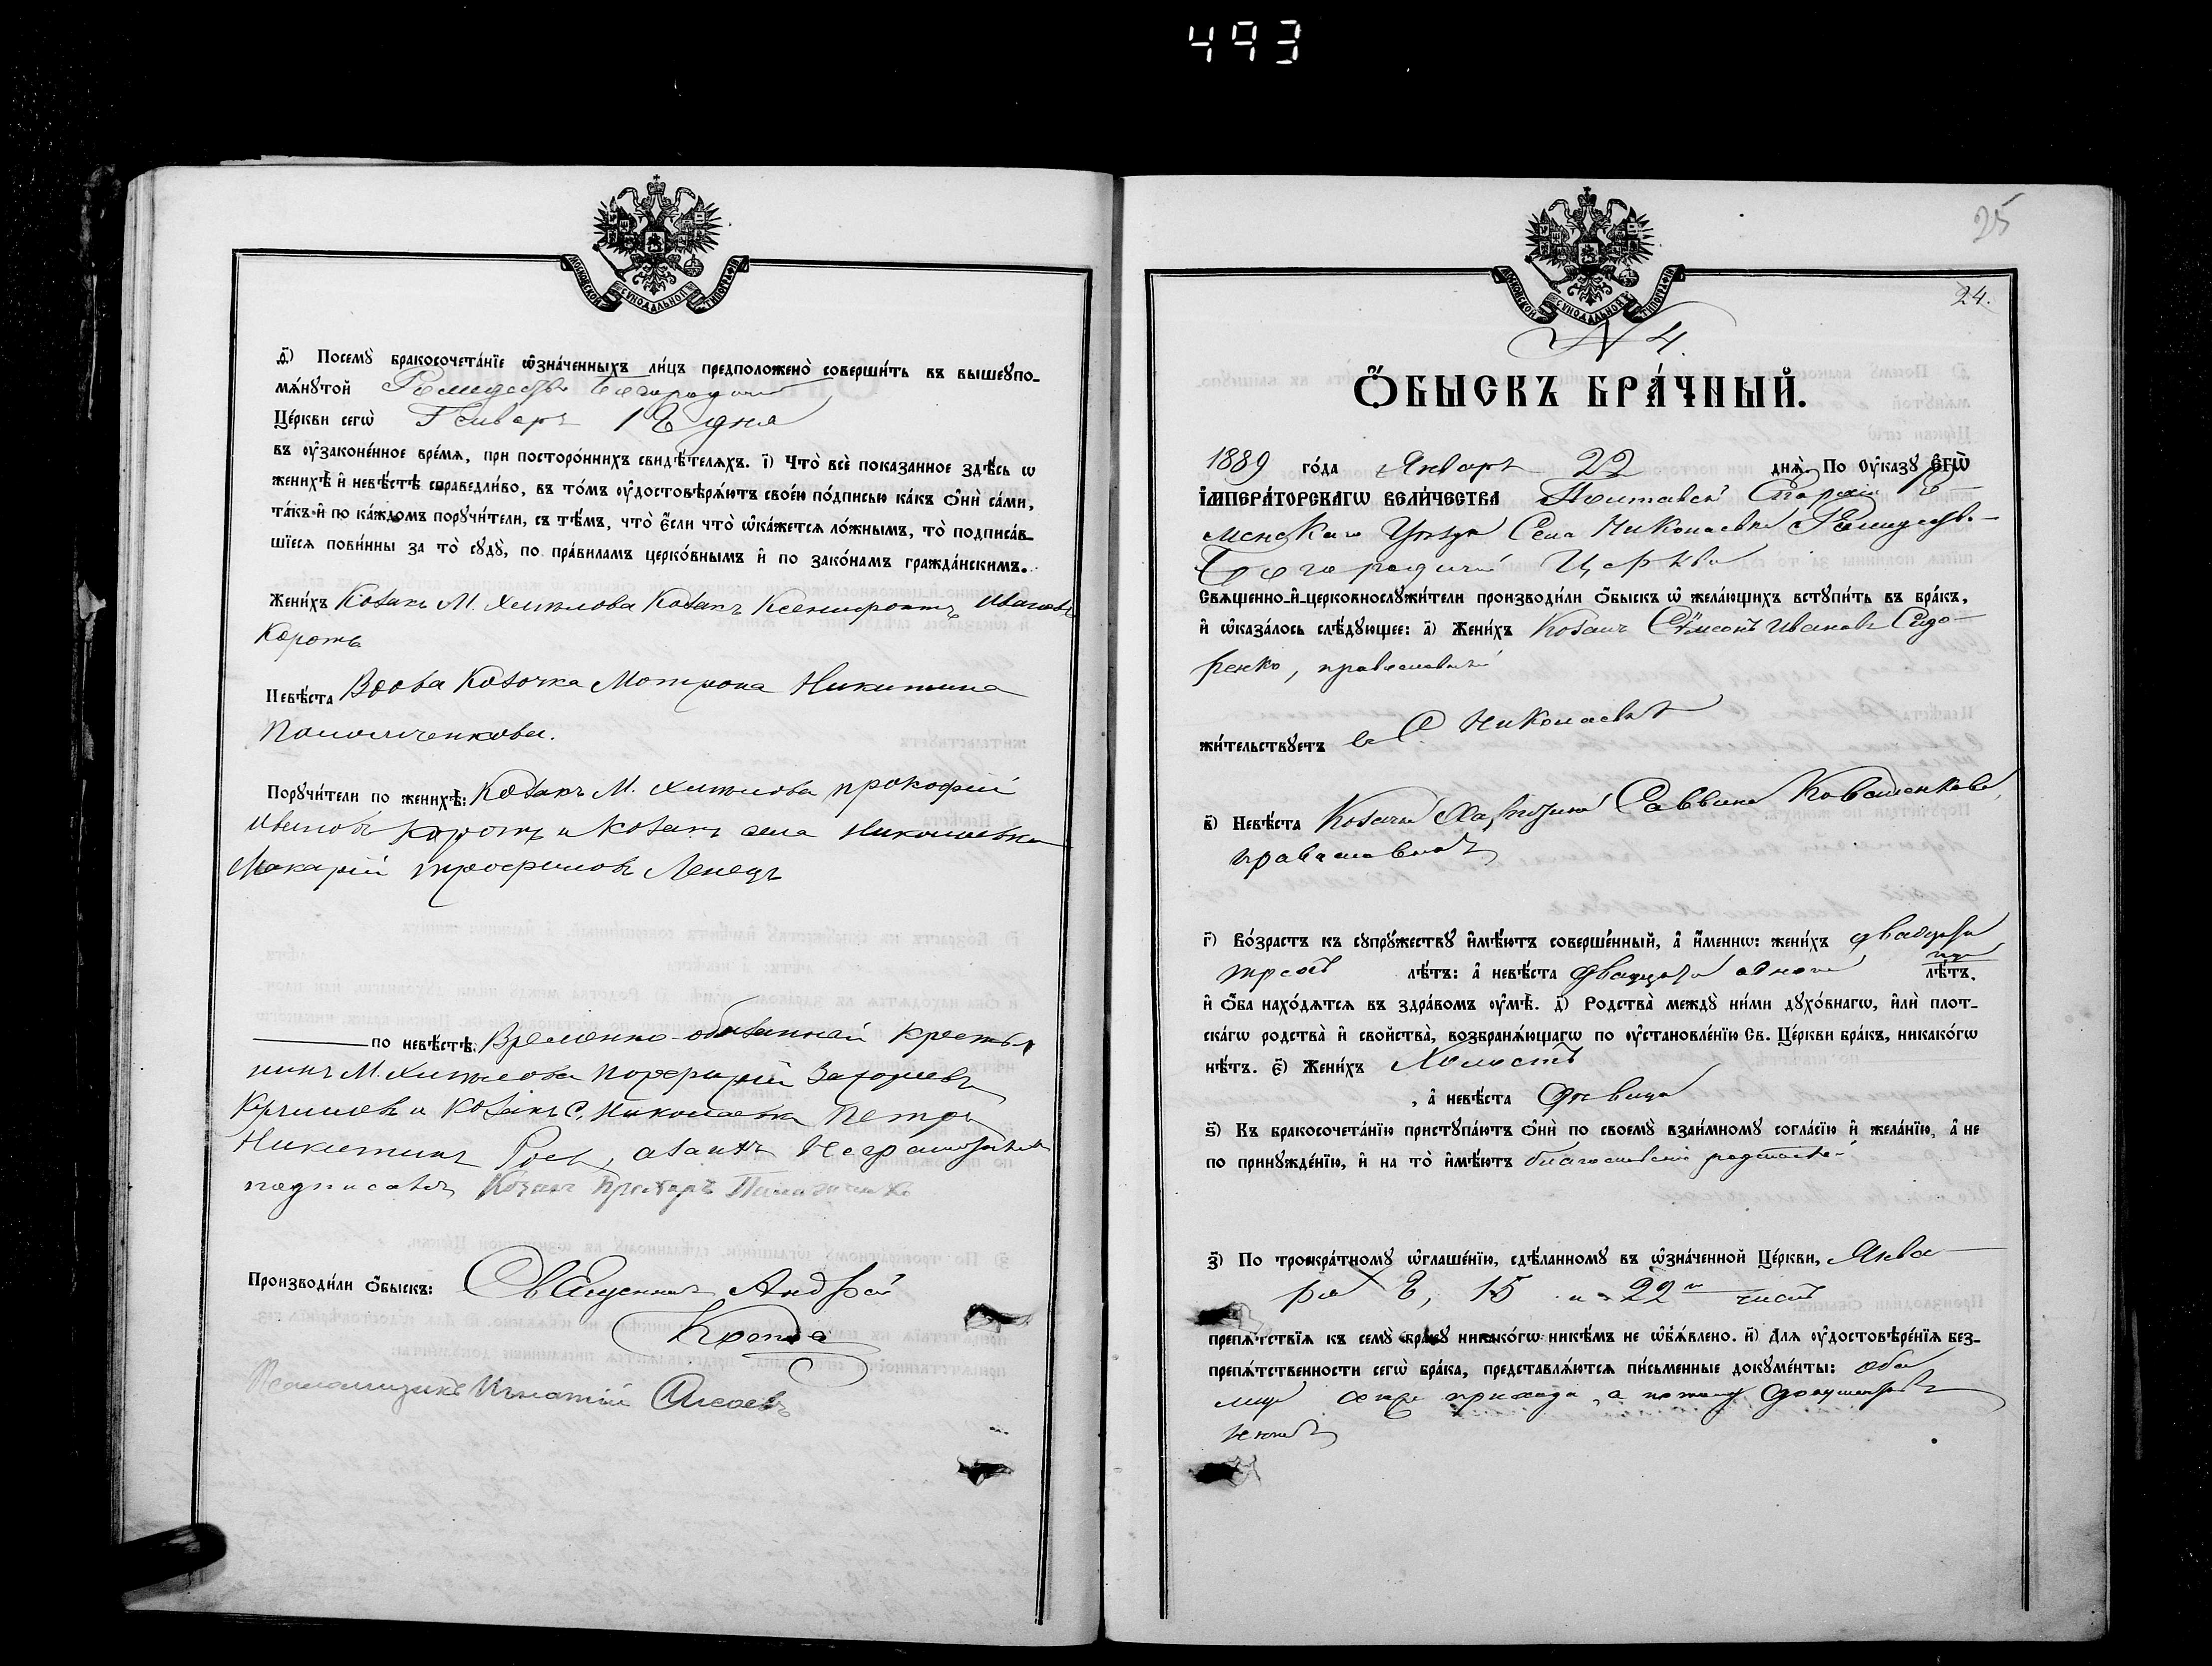 493
МОСКОВСКОЙ СѴНОДАЛЬНОЙ ТИПОГРАФІИ
д҃) Посемꙋ̀ бракосочета́нїе ѡ҆зна́ченныхъ ли́цъ предположено̀ соверши́ть въ вышеꙋпо-
мѧ́нꙋтой Рождество Богородичной
Це́ркви сегѡ̀ Генваря 18 дня
въ ᲂу҆законе́нное вре́мѧ, при посторо́ннихъ свидѣ́телѧхъ. і҃) Что̀ всѐ показанное здѣ́сь ѡ
женихѣ̀ и҆ невѣ́стѣ справедли́во, въ то́мъ ᲂу҆достовѣрѧ́ютъ свое́ю по́дписью ка́къ ѻ҆нѝ са́ми,
та́къ и҆ по ка́ждомъ порꙋчи́тели, съ тѣ́мъ, что̀ є҆́сли что̀ ѡ҆ка́жетсѧ ло́жнымъ, то̀ подписа́в-
шїесѧ пови́нны за то̀ сꙋдꙋ̀, по пра́виламъ церко́внымъ и҆ по зако́намъ гражда́нскимъ.
Жени́хъ Козакъ М. Хитлова Козакъ Ксенофонтъ Ивановъ
Коротъ
Невѣ́ста Вдова Козачка Мотрона Никитина
Порꙋчи́тели по женихѣ̀: Козакъ М. Хитлова Прокофій
Ивановъ Коротъ и Козакъ села Николаевки
Макарій Трофимовъ Ленецъ
по невѣ́стѣ: Временно-обязанный крестья
нинъ М. Хитлова Порфирій
и Козакъ С. Николаевки Петръ
Никитинъ а за нхъ неграмотныхъ
подписался Козакъ
Производи́ли ѻ҆́быскъ: Священникъ Андрей
Псаломщикъ Игнатій
25
МОСКОВСКОЙ СѴНОДАЛЬНОЙ ТИПОГРАФІИ
24.
N 4.
Ѻ҆́БЫСКЪ БРА́ЧНЫЙ.
1889 го́да Январь 22 днѧ̀. По ᲂу҆казꙋ є҆гѡ̀
і҆мпера́торскагѡ вели́чества Полтавской Епархіи Ро-
менскаго Уѣзда Села Николаевки Рождество-
Богородичной Церкви
Свѧщенно-и҆-церковнослꙋжи́тели производи́ли ѻ҆́быскъ ѡ҆ жела́ющихъ встꙋпи́ть въ бра́къ,
и҆ ѡ҆каза́лось слѣ́дꙋющее: а҃) Жени́хъ Козакъ Сѵмеонъ Ивановъ Сидо-
ренко, православный
жи́тельствꙋетъ въ С Николаевкѣ
в҃) Невѣ́ста Саввина
православная
г҃) Во́зрастъ къ сꙋпрꙋ́жествꙋ и҆мѣ́ютъ соверше́нный, а҆ и҆́меннѡ: жени́хъ двадцати
трехъ лѣ́тъ: а҆ невѣ́ста двадцати одного лѣ́тъ.
и҆ ѻ҆́ба нахо́дѧтсѧ въ здра́вомъ ᲂу҆мѣ̀. д҃) Родства̀ междꙋ̀ ни́ми дꙋхо́внагѡ, и҆лѝ плот-
ска́гѡ родства̀ и҆ сво́йства̀, возбранѧ́ющагѡ по ᲂу҆становле́нїю Св. Це́ркви бра́къ, никако́гѡ
нѣ́тъ. є҃) Жени́хъ Холостъ
, а҆ невѣ́ста дѣвица
ѕ҃) Къ бракосочета́нїю пристꙋпа́ютъ ѻ҆нѝ по своемꙋ̀ взаи́мномꙋ согла́сїю и҆ жела́нїю, а҆ не
по принꙋжде́нїю, и҆ на то̀ и҆мѣ́ютъ благословеніе родителей
з҃) По трокра́тномꙋ ѡ҆глаше́нїю, сдѣ́ланномꙋ въ ѡ҆зна́ченной Це́ркви, Янва-
ря 8, 15 и 22 числъ
препѧ́тствїѧ къ семꙋ̀ бра́кꙋ никако́гѡ никѣ́мъ не ѡ҆б̾ѧ́влено. и҃) Длѧ ᲂу҆достовѣре́нїѧ без-
препѧ́тственности сегѡ̀ бра́ка, представлѧ́ютсѧ пи́сьменные докꙋме́нты: оба
лица сего прихода, а потому документовъ